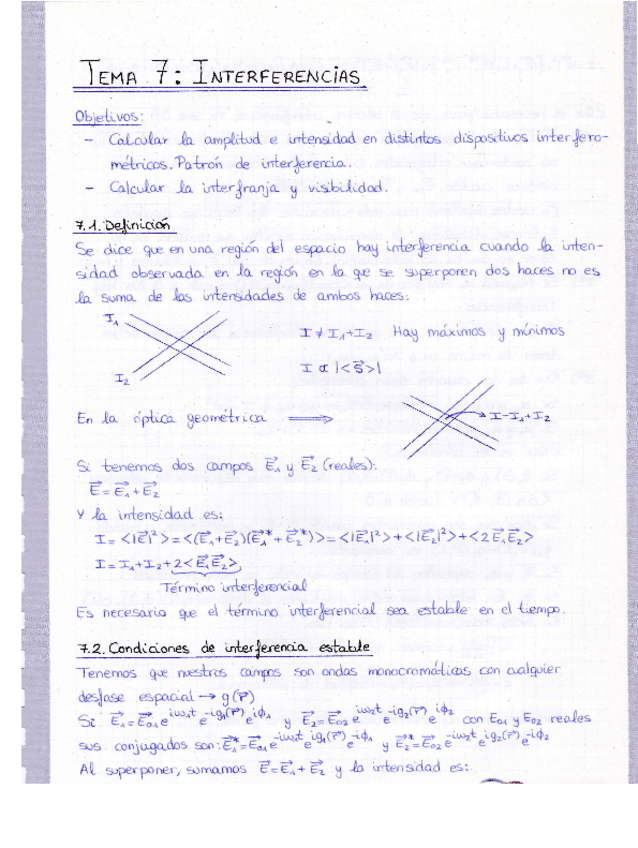 TEMA 7: INTERFERENCIAS
Objetivos:
- Calcular la amplitud e intensidad en distintos dispositivos interfero-
métricos. Patrón de interferencia.
- Calcular la interfranja y visibilidad.
7.1. Definición
Se dice que en una región del espacio hay interferencia cuando la inten-
sidad observada en la región en la que se superponen dos haces no es
la suma de las intensidades de ambos haces:
I₁
I ≠ I₁+I₂ Hay máximos y mínimos
I α |<S⃗>|
I₂
En la óptica geométrica ⟹ I=I₁+I₂
Si tenemos dos campos E⃗₁ y E⃗₂ (reales):
E⃗ = E⃗₁+E⃗₂
Y la intensidad es:
I = <|E⃗|²> = <(E⃗₁+E⃗₂)(E⃗₁*+E⃗₂*)> = <|E⃗₁|²> + <|E⃗₂|²> + <2E⃗₁E⃗₂>
I = I₁+I₂+2<E⃗₁E⃗₂>
Término interferencial
Es necesario que el término interferencial sea estable en el tiempo.
7.2. Condiciones de interferencia estable
Tenemos que nuestros campos son ondas monocromáticas con cualquier
desfase espacial → g(r⃗)
Si E⃗₁=E⃗₀₁ e^{iω₁t} e^{-ig₁(r⃗)} e^{iφ₁} y E⃗₂=E⃗₀₂ e^{iω₂t} e^{-ig₂(r⃗)} e^{iφ₂} con E₀₁ y E₀₂ reales
sus conjugados son: E⃗₁*=E⃗₀₁ e^{-iω₁t} e^{ig₁(r⃗)} e^{-iφ₁} y E⃗₂*=E⃗₀₂ e^{-iω₂t} e^{ig₂(r⃗)} e^{-iφ₂}
Al superponer, sumamos E⃗=E⃗₁+E⃗₂ y la intensidad es: